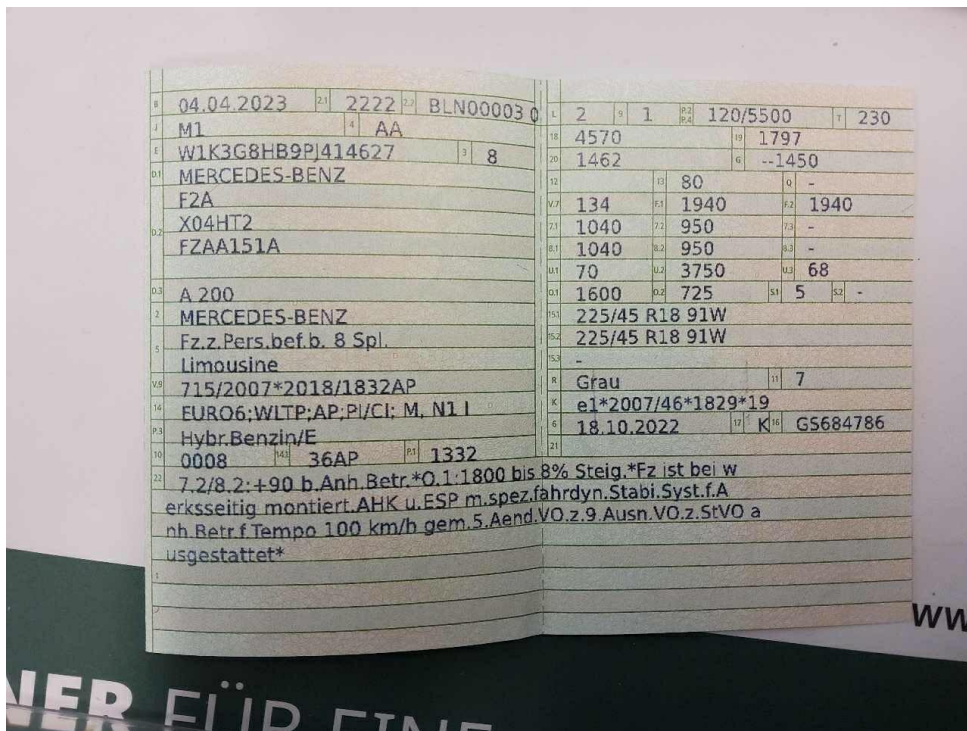 B 04.04.2023 2.1 2222 2.2 BLN00003 0
J M1 4 AA
E W1K3G8HB9PJ414627 3 8
D.1 MERCEDES-BENZ
F2A
D.2 X04HT2
FZAA151A
D.3 A 200
2 MERCEDES-BENZ
5 Fz.z.Pers.bef.b. 8 Spl.
Limousine
V.9 715/2007*2018/1832AP
14 EURO6;WLTP;AP;PI/CI; M, N1 I
P.3 Hybr.Benzin/E
10 0008 14.1 36AP P.1 1332
L 2 9 1 P.2 P.4 120/5500 T 230
18 4570 19 1797
20 1462 G --1450
12 13 80 Q -
V.7 134 F.1 1940 F.2 1940
7.1 1040 7.2 950 7.3 -
8.1 1040 8.2 950 8.3 -
U.1 70 U.2 3750 U.3 68
O.1 1600 O.2 725 S.1 5 S.2 -
15.1 225/45 R18 91W
15.2 225/45 R18 91W
15.3 -
R Grau 11 7
K e1*2007/46*1829*19
6 18.10.2022 17 K 16 GS684786
21
22 7.2/8.2:+90 b.Anh.Betr.*O.1:1800 bis 8% Steig.*Fz ist bei w
erksseitig montiert.AHK u.ESP m.spez.fahrdyn.Stabi.Syst.f.A
nh.Betr.f.Tempo 100 km/h gem.5.Aend.VO.z.9.Ausn.VO.z.StVO a
usgestattet*
ww
NER FÜR EINE